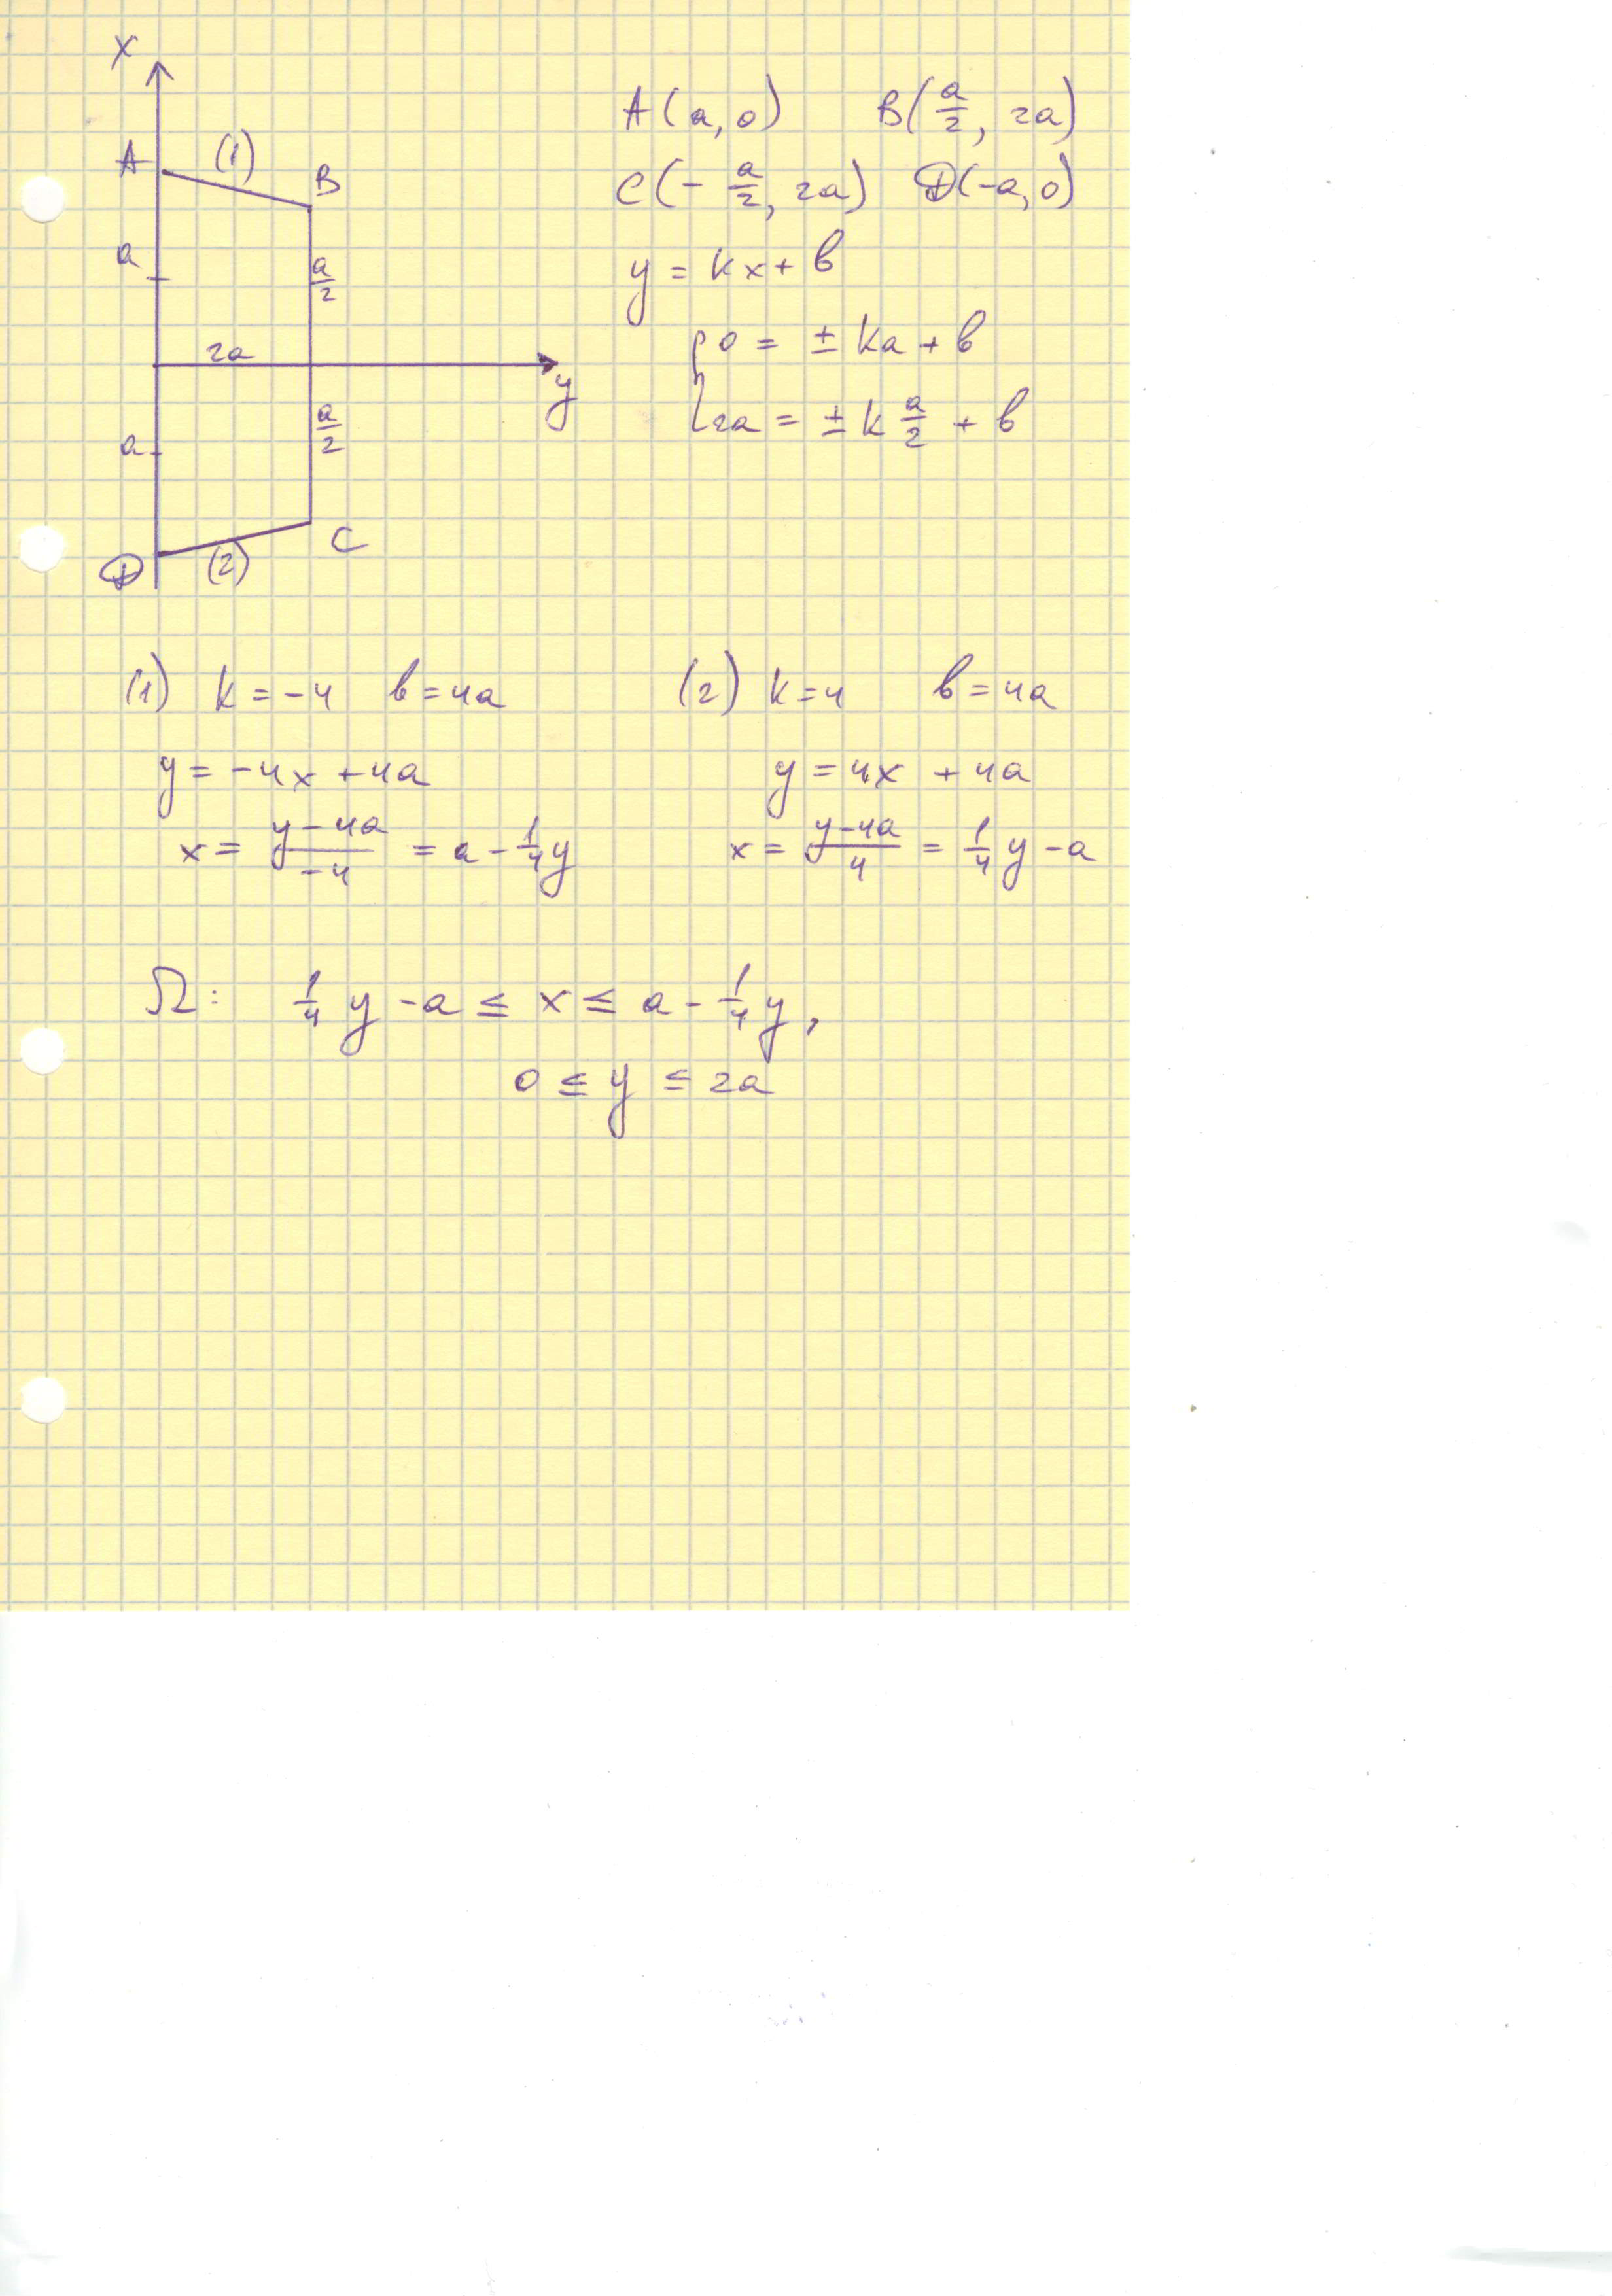 x
A (1) B
a a/2
2a
y
a a/2
D (2) C
A(a, 0) B(a/2, 2a)
C(-a/2, 2a) D(-a, 0)
y = kx + b
{ 0 = ± ka + b
2a = ± k a/2 + b
(1) k = -4 b = 4a
y = -4x + 4a
x = (y - 4a)/(-4) = a - 1/4 y
(2) k = 4 b = 4a
y = 4x + 4a
x = (y - 4a)/4 = 1/4 y - a
Ω: 1/4 y - a ≤ x ≤ a - 1/4 y,
0 ≤ y ≤ 2a